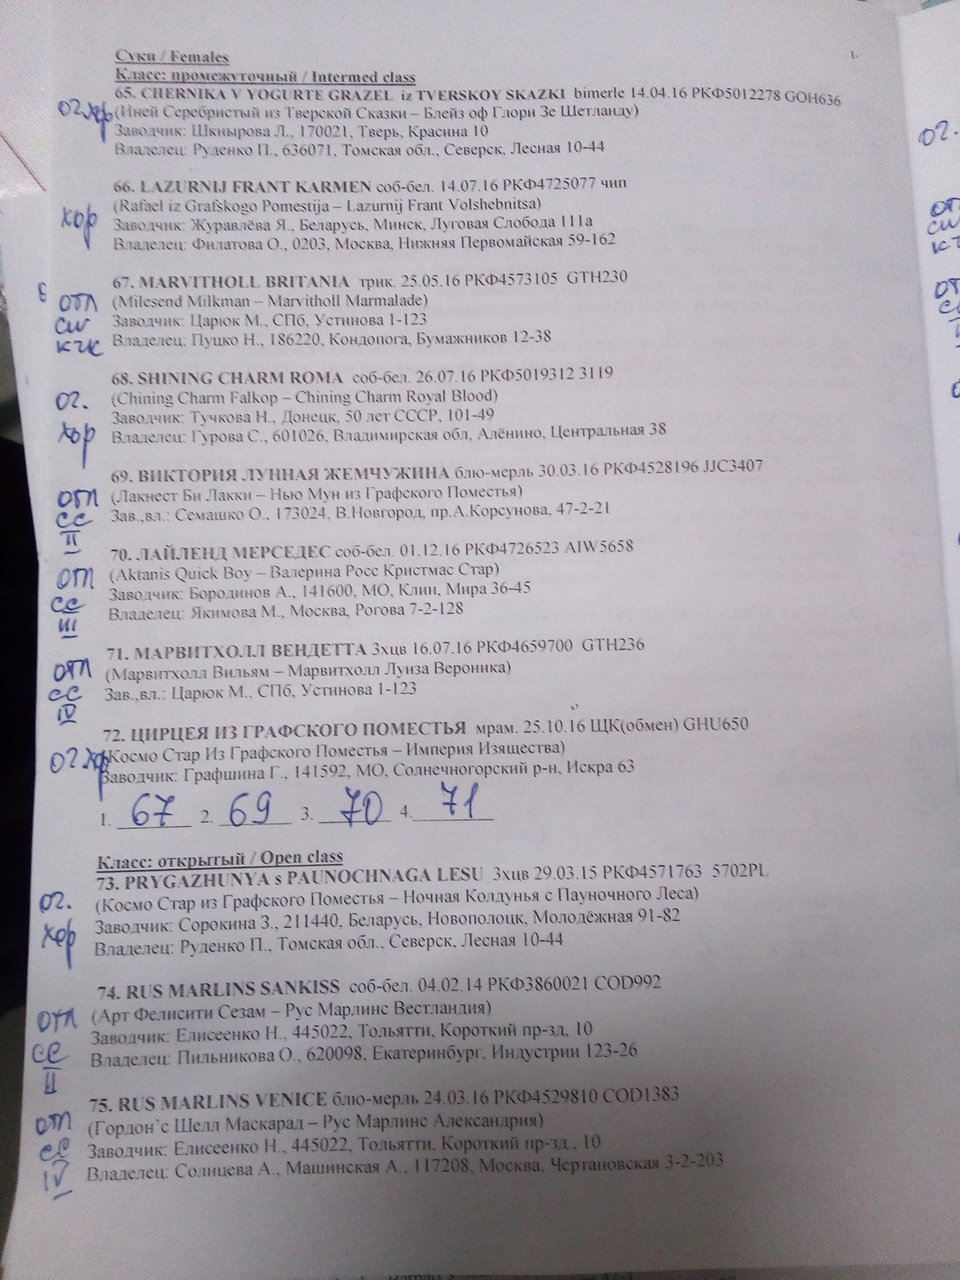 Суки / Females
Класс: промежуточный / Intermed class
65. CHERNIKA V YOGURTE GRAZEL iz TVERSKOY SKAZKI bimerle 14.04.16 РКФ5012278 GOH636
оч. хор
(Иней Серебристый из Тверской Сказки – Блейз оф Глори Зе Шетланду)
Заводчик: Шкнырова Л., 170021, Тверь, Красина 10
Владелец: Руденко П., 636071, Томская обл., Северск, Лесная 10-44
66. LAZURNIJ FRANT KARMEN соб-бел. 14.07.16 РКФ4725077 чип
(Rafael iz Grafskogo Pomestija – Lazurnij Frant Volshebnitsa)
хор
Заводчик: Журавлёва Я., Беларусь, Минск, Луговая Слобода 111а
Владелец: Филатова О., 0203, Москва, Нижняя Первомайская 59-162
67. MARVITHOLL BRITANIA трик. 25.05.16 РКФ4573105 GTH230
отл (Milesend Milkman – Marvitholl Marmalade)
CW Заводчик: Царюк М., СПб, Устинова 1-123
КЧК Владелец: Пуцко Н., 186220, Кондопога, Бумажников 12-38
68. SHINING CHARM ROMA соб-бел. 26.07.16 РКФ5019312 3119
оч. (Chining Charm Falkop – Chining Charm Royal Blood)
Заводчик: Тучкова Н., Донецк, 50 лет СССР, 101-49
хор Владелец: Гурова С., 601026, Владимирская обл, Алёнино, Центральная 38
69. ВИКТОРИЯ ЛУННАЯ ЖЕМЧУЖИНА блю-мерль 30.03.16 РКФ4528196 JJC3407
отл (Лакнест Би Лакки – Нью Мун из Графского Поместья)
СС Зав.,вл.: Семашко О., 173024, В.Новгород, пр.А.Корсунова, 47-2-21
II
70. ЛАЙЛЕНД МЕРСЕДЕС соб-бел. 01.12.16 РКФ4726523 AIW5658
отл (Aktanis Quick Boy – Валерина Росс Кристмас Стар)
Заводчик: Бородинов А., 141600, МО, Клин, Мира 36-45
СС Владелец: Якимова М., Москва, Рогова 7-2-128
III
71. МАРВИТХОЛЛ ВЕНДЕТТА 3хцв 16.07.16 РКФ4659700 GTH236
отл (Марвитхолл Вильям – Марвитхолл Луиза Вероника)
СС Зав.,вл.: Царюк М., СПб, Устинова 1-123
IV
72. ЦИРЦЕЯ ИЗ ГРАФСКОГО ПОМЕСТЬЯ мрам. 25.10.16 ЩК(обмен) GHU650
оч. хор (Космо Стар Из Графского Поместья – Империя Изящества)
Заводчик: Графшина Г., 141592, МО, Солнечногорский р-н, Искра 63
1. 67 2. 69 3. 70 4. 71
Класс: открытый / Open class
73. PRYGAZHUNYA s PAUNOCHNAGA LESU 3хцв 29.03.15 РКФ4571763 5702PL
оч. (Космо Стар из Графского Поместья – Ночная Колдунья с Пауночного Леса)
Заводчик: Сорокина З., 211440, Беларусь, Новополоцк, Молодёжная 91-82
хор Владелец: Руденко П., Томская обл., Северск, Лесная 10-44
74. RUS MARLINS SANKISS соб-бел. 04.02.14 РКФ3860021 COD992
отл (Арт Фелисити Сезам – Рус Марлинс Вестландия)
Заводчик: Елисеенко Н., 445022, Тольятти, Короткий пр-зд, 10
СС Владелец: Пильникова О., 620098, Екатеринбург, Индустрии 123-26
II
75. RUS MARLINS VENICE блю-мерль 24.03.16 РКФ4529810 COD1383
отл (Гордон`с Шелл Маскарад – Рус Марлинс Александрия)
СС Заводчик: Елисеенко Н., 445022, Тольятти, Короткий пр-зд., 10
IV Владелец: Солнцева А., Машинская А., 117208, Москва, Чертановская 3-2-203
оч.